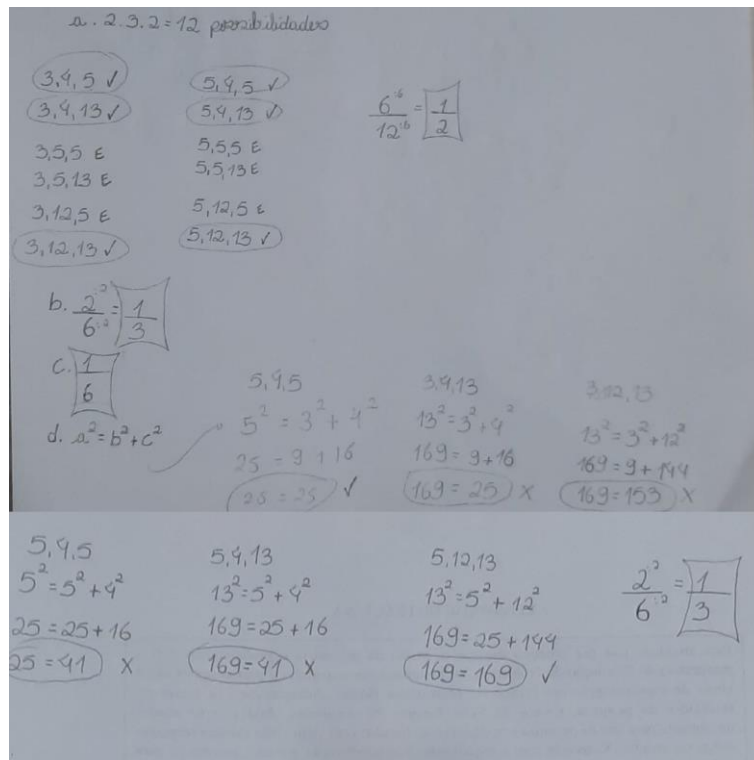 a. 2.3.2 = 12 possibilidades
3,4,5 ✓
3,4,13 ✓
3,5,5 E
3,5,13 E
3,12,5 E
3,12,13 ✓
5,4,5 ✓
5,4,13 ✓
5,5,5 E
5,5,13 E
5,12,5 E
5,12,13 ✓
6:6/12:6 = 1/2
b. 2:2/6:2 = 1/3
c. 1/6
d. a² = b² + c²
5,4,5
5² = 3² + 4²
25 = 9 + 16
25 = 25 ✓
3,4,13
13² = 3² + 4²
169 = 9 + 16
169 = 25 X
3,12,13
13² = 3² + 12²
169 = 9 + 144
169 = 153 X
5,4,5
5² = 5² + 4²
25 = 25 + 16
25 = 41 X
5,4,13
13² = 5² + 4²
169 = 25 + 16
169 = 41 X
5,12,13
13² = 5² + 12²
169 = 25 + 144
169 = 169 ✓
2:2/6:2 = 1/3